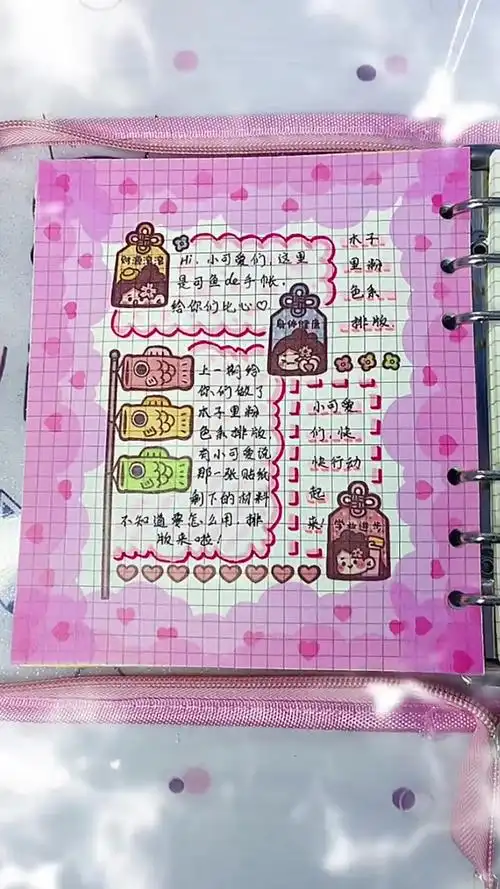 财源滚滚
Hi，小可爱们，这里
是可鱼de手帐，
给你们比心♡
木子
里粉
色系
排版
身体健康
上一期给
你们做了
木子里粉
色系排版
有小可爱说
那一张贴纸
剩下的材料
不知道要怎么用，排
版来啦！
小可爱
们，快
快行动
起
来！
学业进步